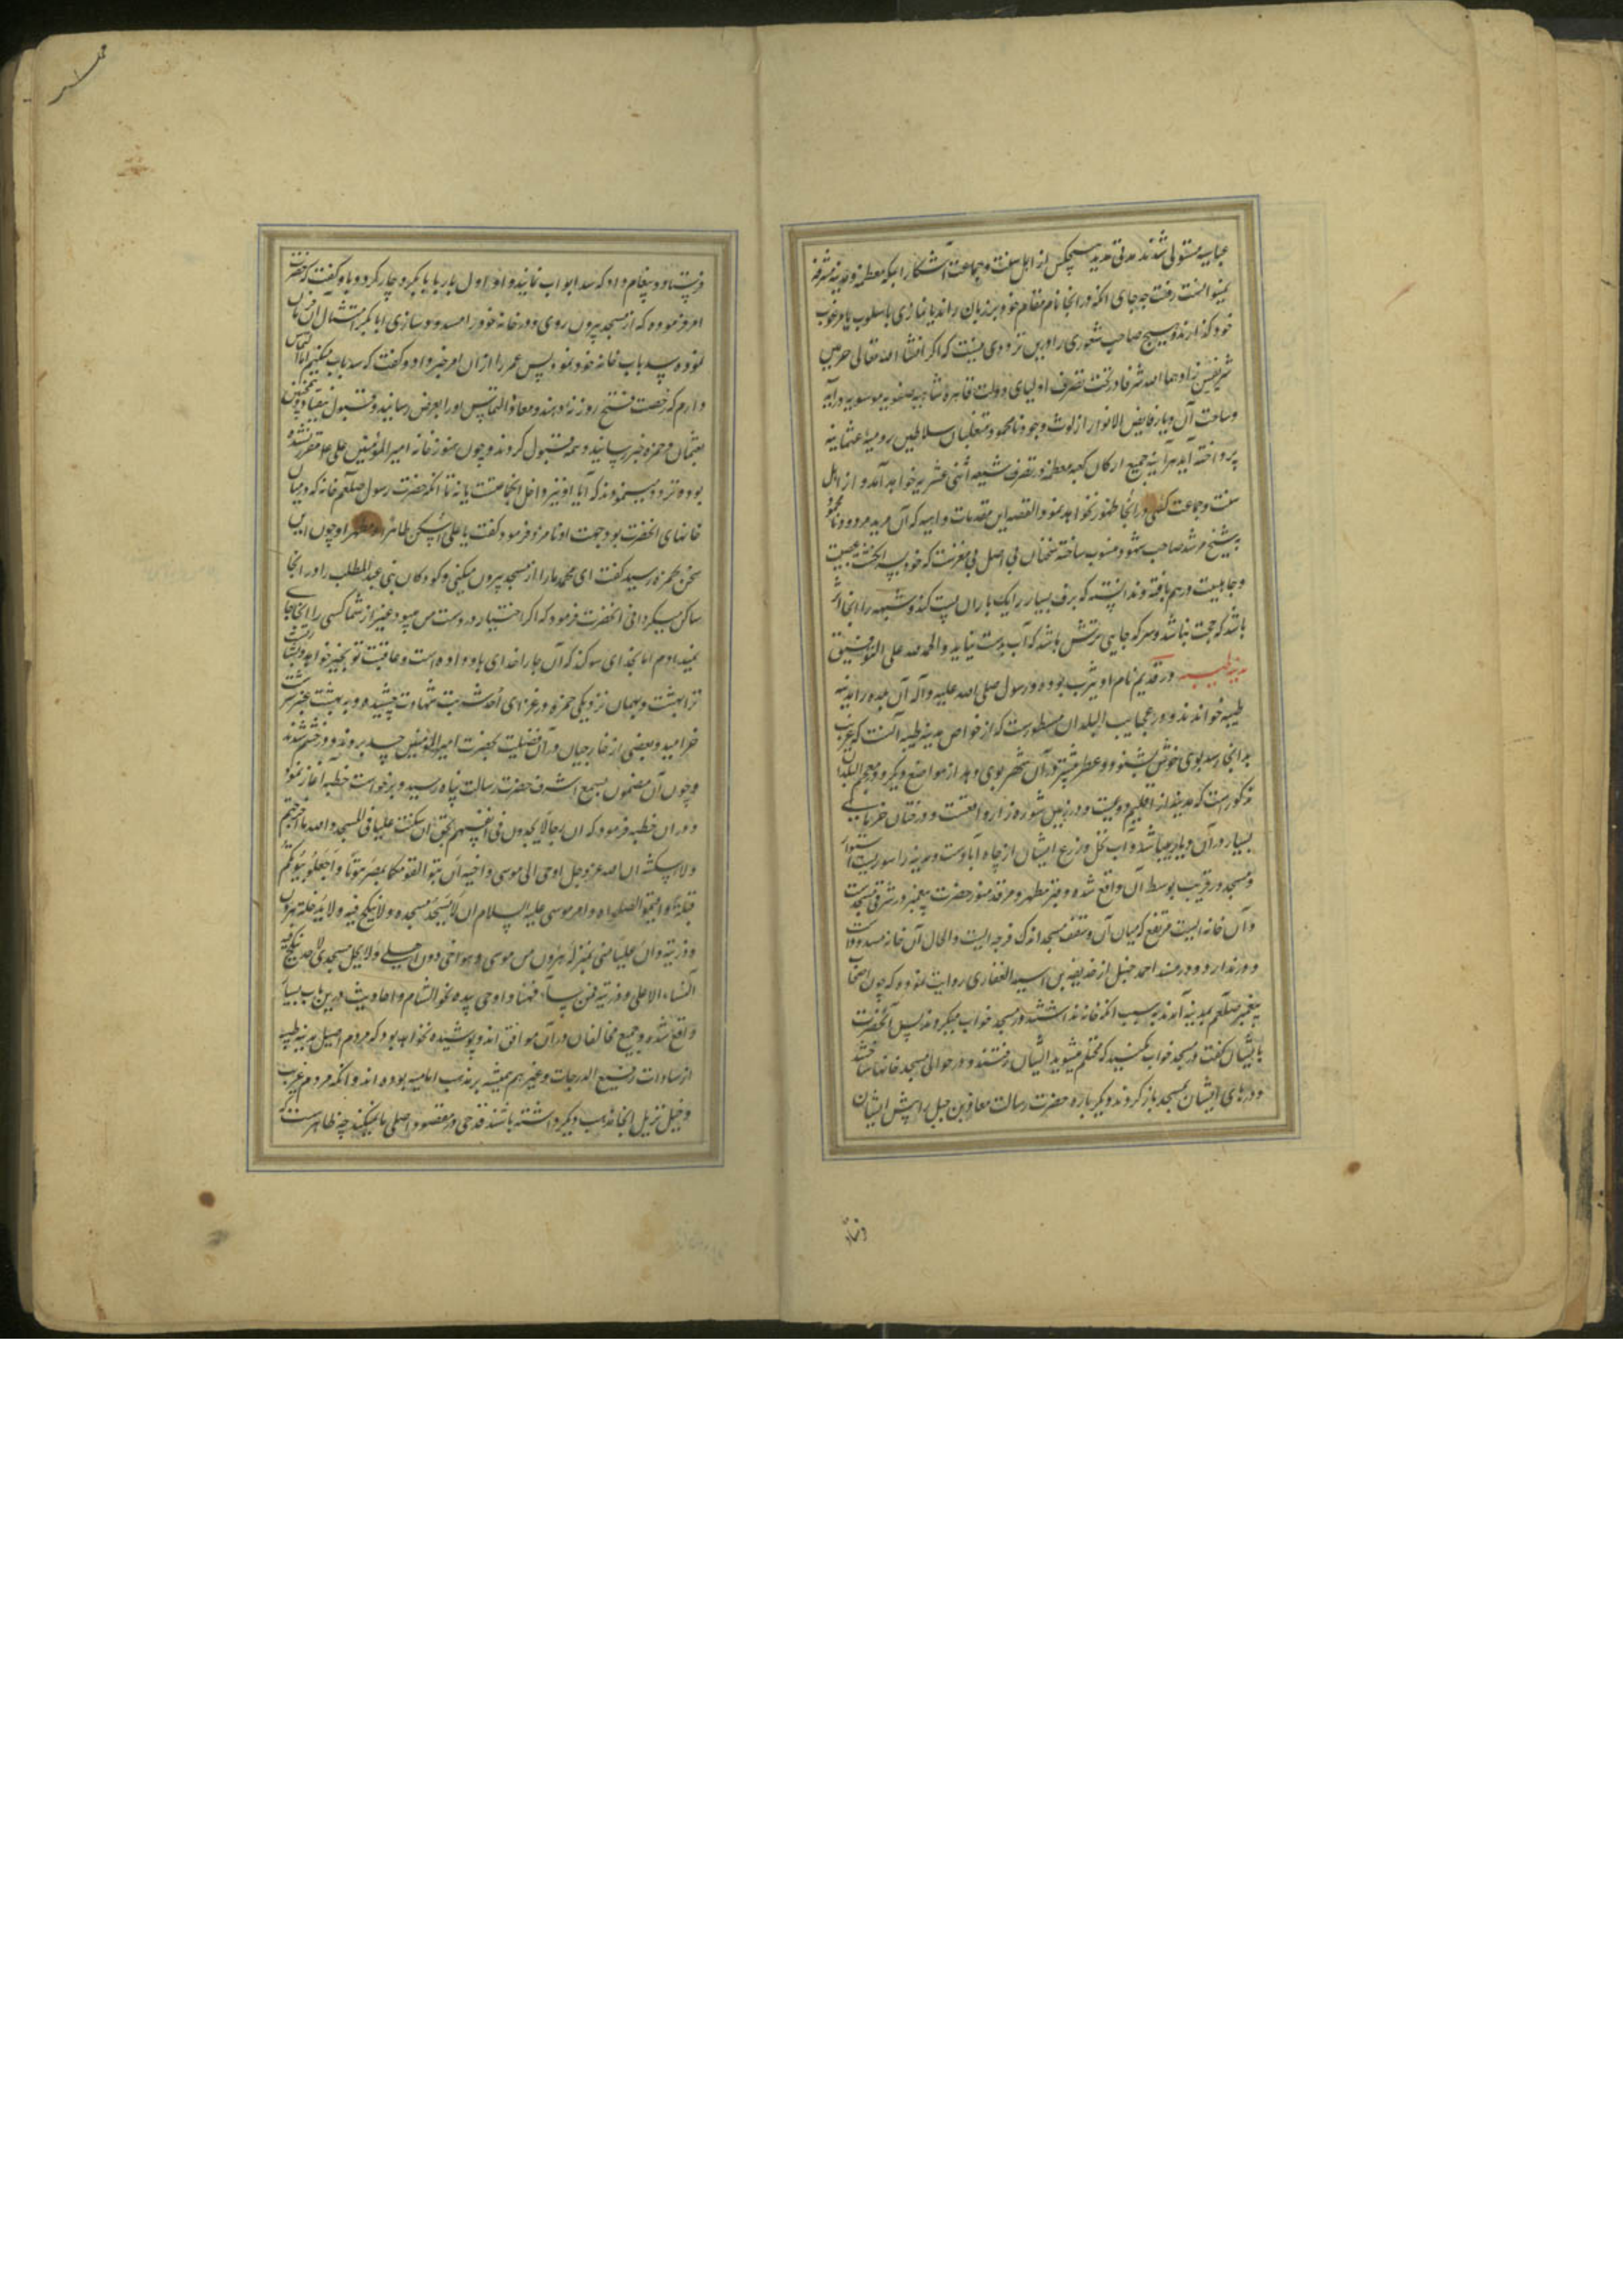 عباسیه مستولی شدند مدتی مدید هیچکس از اهل سنت و جماعت آشکارا بمکه معظمه و مدینه مشرفه
نمیتوانست رفت چه جای آنکه در انجا نام مقدام خود بر زبان راند یا نمازی باسلوب نامرغوب
خود گذارند و هیچ صاحب شعوری را درین ترددی نیست که اگر انشاء الله تعالی حرمین
شریفین زادهما الله شرفا در تحت تصرف اولیای دولت قاهره شاهیه صفویه موسویه در آید
و ساحت آن دیار فایض الانوار از لوث وجود نامحمود متغلبان سلاطین رومیه عثمانیه
پرداخته آید هر آینه جمیع ارکان کعبه معظمه در تصرف شیعه اثنی عشریه خواهد آمد و از اهل
سنت و جماعت کسی در انجا ظهور نخواهد نمود القصه این مقدمات واهیه که آن مرید مردود نامحمود
بشیخ مرشد صاحب شهود منسوب ساخته سخنان بی اصل بی مغزست که خود بسر انگشت عصبیت
و جاهلیت در هم بافته و ندانسته که برف بسیار را یک باران پست کند و شبهه را انجا اثر
باشد که حجت نباشد و سرکه جایی ترش باشد که آب بدست نیاید و الحمد لله علی التوفیق
مدینه طیبه در قدیم نام او یثرب بوده و رسول صلی الله علیه و آله آن بلده را مدینه
طیبه خواندند و در عجایب البلدان مسطورست که از خواص مدینه طیبه آنست که غریب
بدانجا رسد بوی خوش بشنود و عطر بیشتر در آن شهر بوی دهد از مواضع دیگر و در معجم البلدان
مذکورست که مدینه از اقلیم دویست و در زمین شوره زار واقعست و درختان خرمای
بسیار در آن دیار میباشد و آب نخل و زرع ایشان از چاه آباوست و مدینه را سوریست استوار
و مسجد در قریب بوسط آن واقع شده و قبر مطهر و مرقد منور حضرت پیغمبر در شرقی مسجدست
و آن خانه ایست مرتفع که میان آن و سقف مسجد اندک فرجه ایست و الحال آن خانه مسدودست
و در ندارد و در مسند احمد حنبل از حذیفه بن اسید الغفاری روایت نموده که چون اصحاب
پیغمبر صلعم بمدینه آمدند بسبب آنکه خانه نداشتند در مسجد خواب میکردند پس آنحضرت
بایشان گفت در مسجد خواب مکنید که محتلم میشوید ایشان رفتند و در حوالی مسجد خانها ساختند
و درهای ایشان بمسجد باز کردند دیگر باره حضرت رسالت معاذ بن جبل را پیش ایشان
فرستاد و پیغام داد که سد ابواب نمایند و او اول بار با ابابکر دوچار کرد و باو گفت که حضرت
امر فرموده که از مسجد بیرون روی و در خانه خود را مسدود سازی ابابکر امتثال آن فرمان
نموده سد باب خانه خود نمود پس عمر را از آن امر خبر داد و گفت که سد باب میکنم اما التماس
دارم که رخصت فتح روزنه دهند و معاذ التماس او را بعرض رسانید و قبول نیفتاد و همچنین
بعثمان و حمزه خبر رسانید و همه قبول کردند و چون هنوز خانه امیر المؤمنین علی ع مقرر نشده
بوده تردد مینمودند که آیا او نیز داخل انجماعتست یا نه تا آنکه حضرت رسول صلعم خانه که در میان
خانهای آنحضرت بود جهت او نامزد فرمود گفت یا علی اسکن طاهرا مطهرا و چون این
سخن بحمزه رسید گفت ای محمد ما را از مسجد بیرون میکنی و کودکان بنی عبد المطلب را در انجا
ساکن میگردانی آنحضرت فرمود که اگر اختیار در دست من میبود غیر از شما کسی را انجا جای
نمیدادم اما بخدای سوگند که آن جا را خدای باو داده است و عاقبت تو بخیر خواهد بود بشارت
ترا ببهشت و بهمان نزدیکی حمزه در غزای احد شربت شهادت چشید و به بهشت عنبر سرشت
خرامید و بعضی از خارجیان در آن فضیلت بحضرت امیر المؤمنین حسد بردند و در خشم شدند
و چون آن مضمون بسمع اشرف حضرت رسالت پناه رسید و برخواست خطبه آغاز نمود
و در ان خطبه فرمود که ان رجالا یجدون فی انفسهم بحق ان سکنت علیا فی المسجد و الله ما اخرجتهم
و لا اسکنته ان الله عز و جل اوحی الی موسی و اخیه ان تبوا لقومکما بمصر بیوتا و اجعلوا بیوتکم
قبلة و اقیموا الصلوة و امر موسی علیه السلام ان لا یسجد مسجده و لا ینکح فیه و لا یدخله الا هرون
و ذریته و ان علیا منی بمنزلة هرون من موسی و هو اخی دون اهلی و لا یحل مسجدی لاحد ینکح فیه
النساء الا علی و ذریته فمن ساء فههنا و اوحی بیده نحو الشام و احادیث درین باب بسیار
واقع شده و جمیع مخالفان در آن موافق اند و پوشیده نخواهد بود که مردم اصیل مدینه طیبه
از سادات رفیع الدرجات و غیر هم همیشه بر مذهب امامیه بوده اند و آنکه مردم غریب
دخیل نزیل انجا مذهب دیگر داشته باشند قدحی در مقصود اصلی ما نمیکند چه ظاهرست که